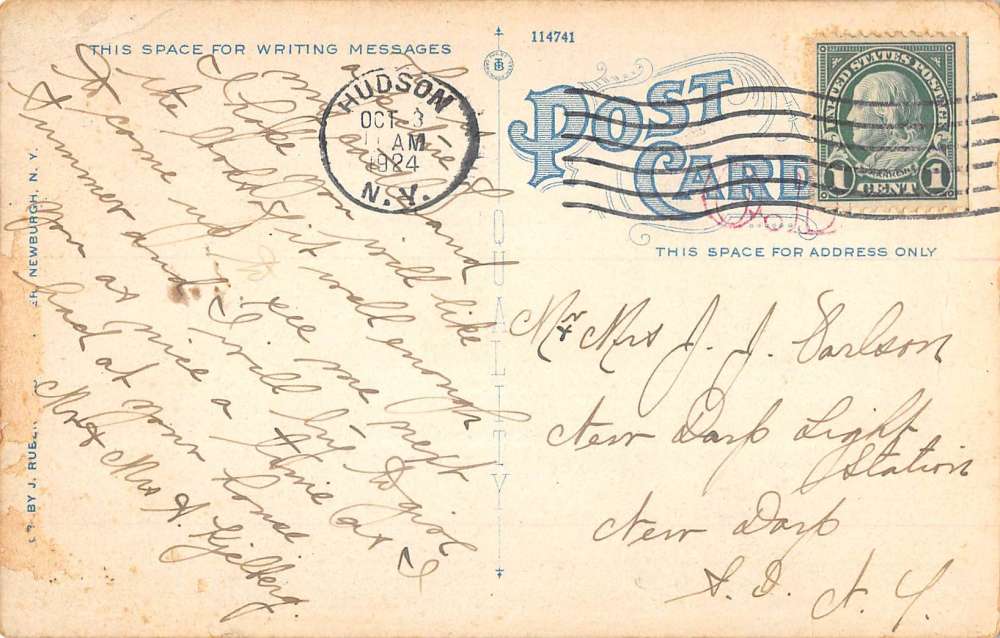 THIS SPACE FOR WRITING MESSAGES
114741
POST CARD
THIS SPACE FOR ADDRESS ONLY
HUDSON
OCT 3
11 AM
1924
N.Y.
UNITED STATES POSTAGE
FRANKLIN
1 CENT 1
QUALITY
BY J. RUBEN
NEWBURGH, N. Y.
and
I hope you will like
the it well enough
to come up to see me next
Summer and I will try to give
You as nice a time as I
had at your house
Mr & Mrs A. Kjelberg.
Mr & Mrs J. J. Carlson
New Dorp Light
Station
New Dorp
S. I. N. Y.